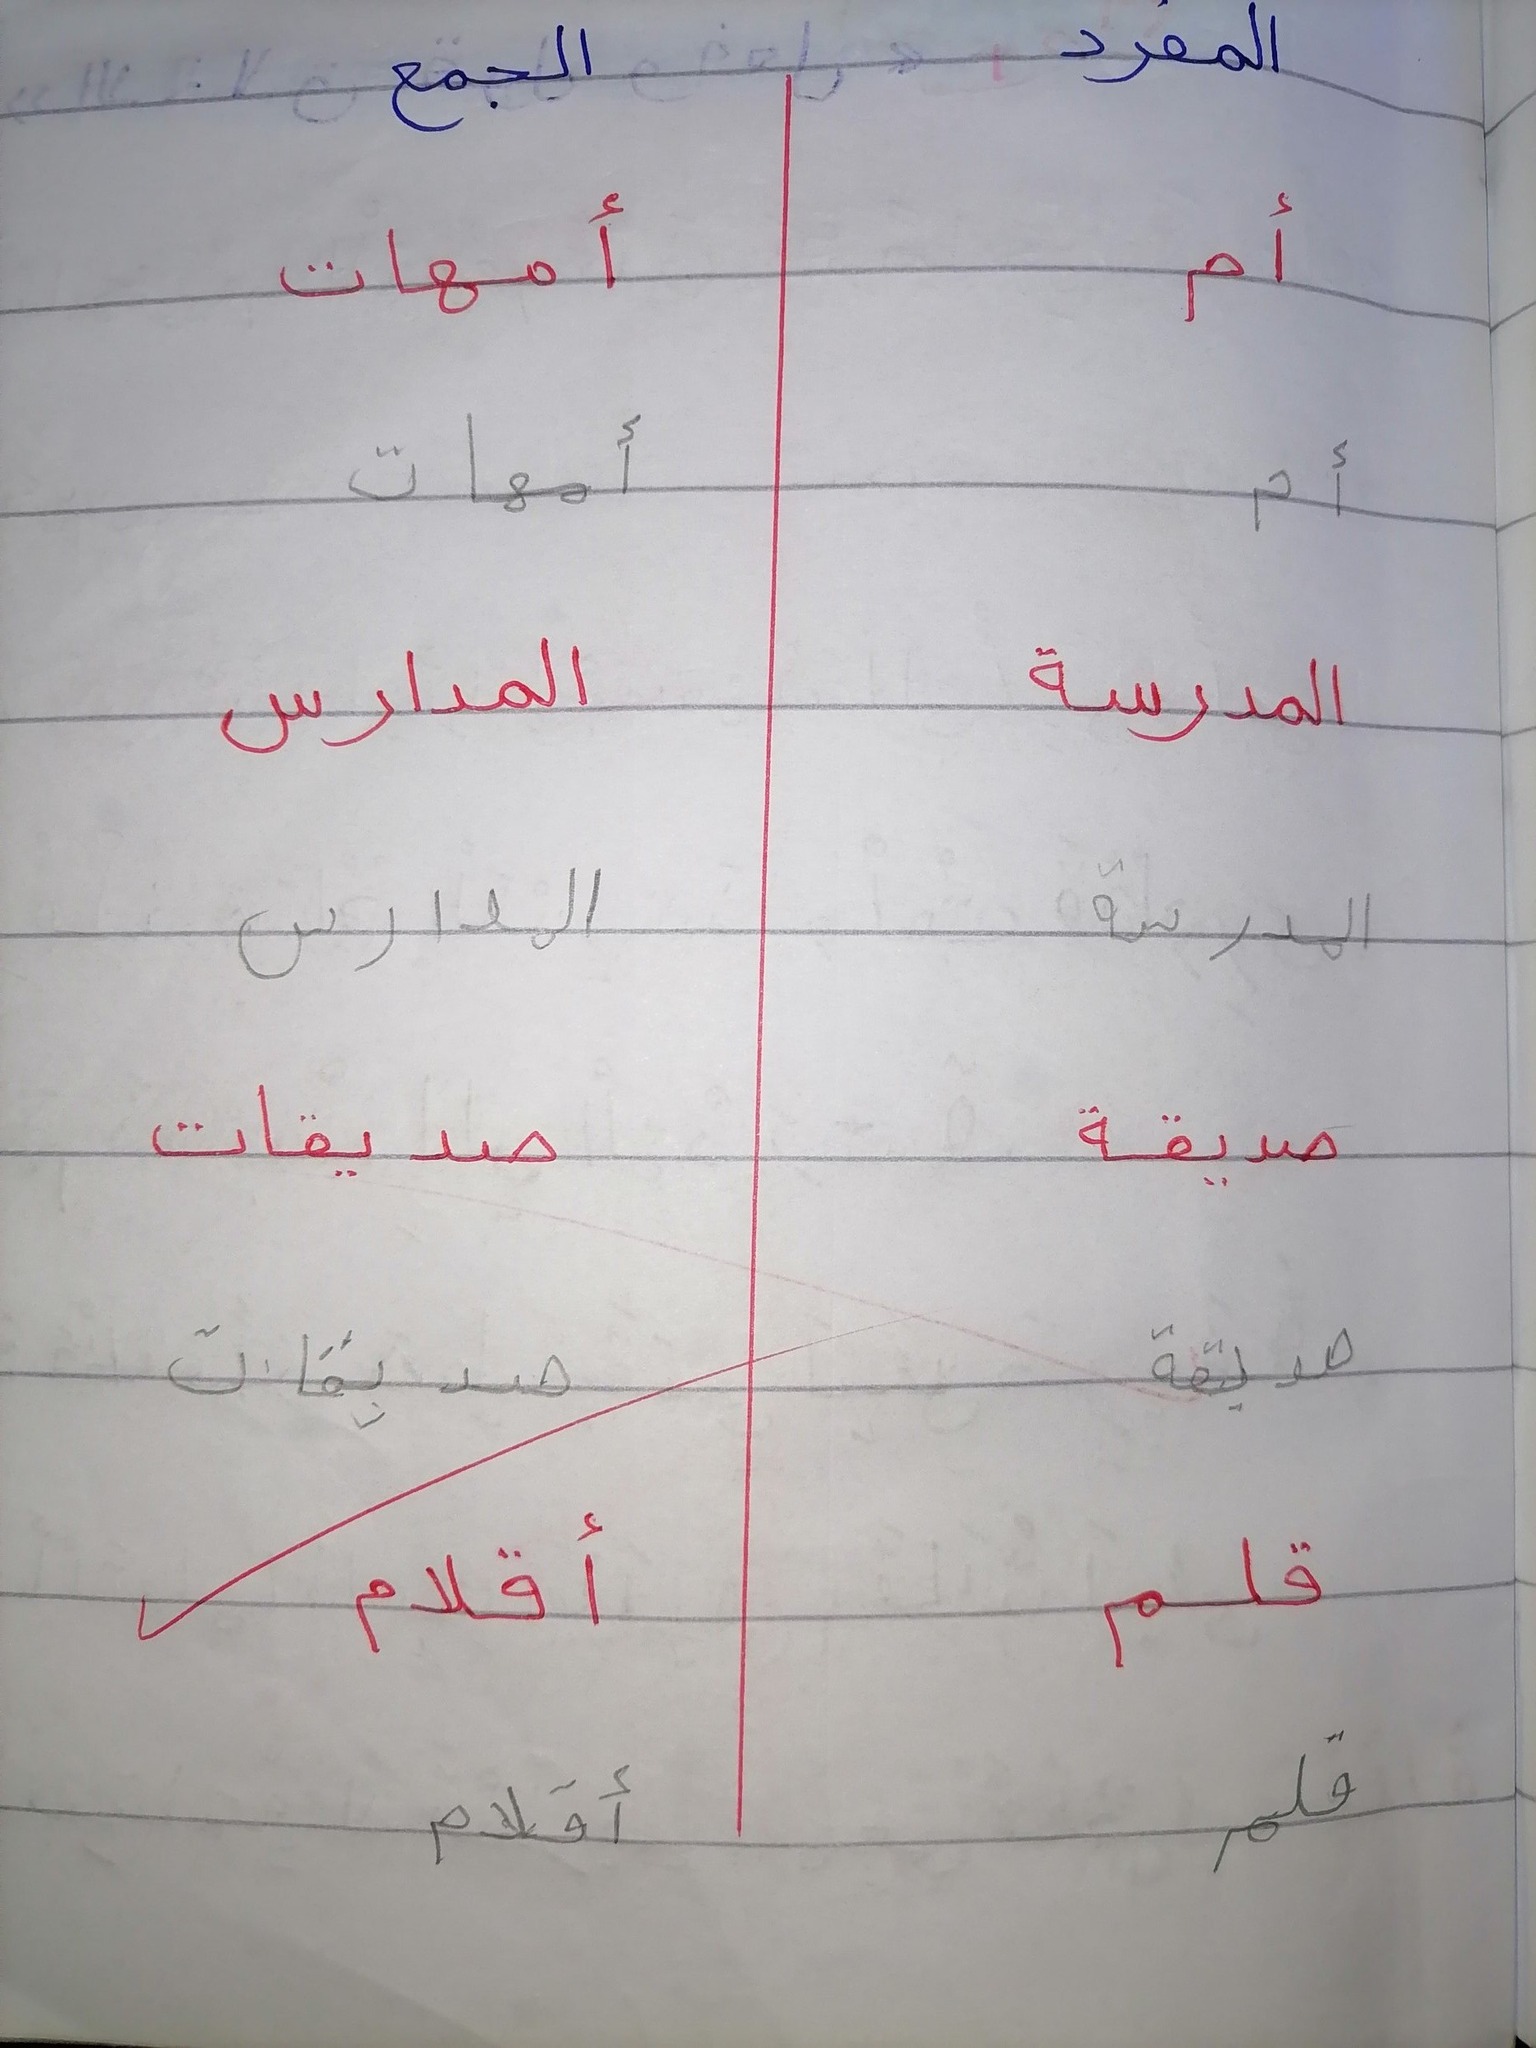 المفرد الجمع
أم أمهات
أم أمهات
المدرسة المدارس
المدرسة المدارس
صديقة صديقات
صديقة صديقات
قلم أقلام
قلم أقلام